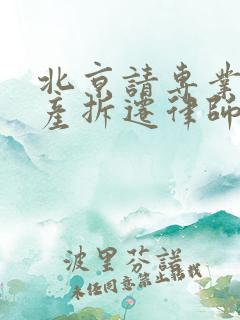 北京請專業
產拆遷律師
波里芬諾
未经同意禁止转载